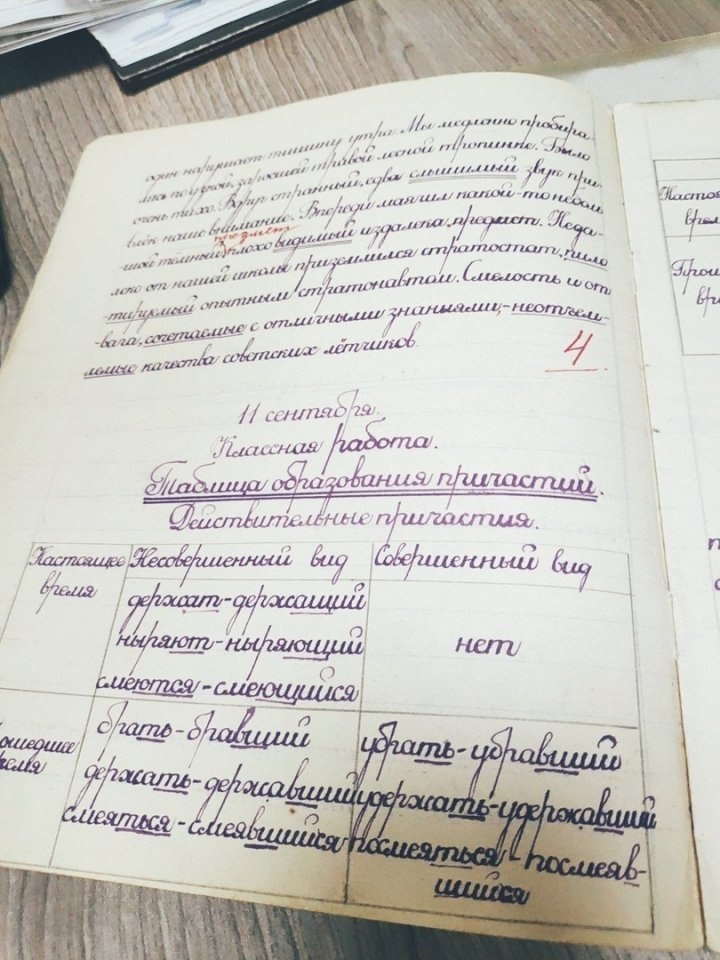 один нарушает тишину утра. Мы медленно пробира-
лись по узкой, заросшей травой лесной тропинке. Было
очень тихо. Вдруг странный, едва слышимый звук при-
влёк наше внимание. Впереди маячил какой-то неболь
предмет
шой тёмный плохо видимый издалека предмет. Неда-
леко от нашей школы приземлился стратостат, пило
-тируемый опытным стратонавтом. Смелость и от
-вага, сочетаемые с отличными знаниями,- неотъем-
лемые качества советских лётчиков.
4
11 сентября.
Классная работа.
Таблица образования причастий.
Действительные причастия.
Настоящее Несовершенный вид Совершенный вид
время держат-держащий
ныряют-ныряющий нет
смеются-смеющийся
ошедшее брать-бравший убрать-убравший
емя держать-державший удержать-удержавший
смеяться-смеявшийся посмеяться-посмеяв-
шийся
Настоя
врем
Прош
вре